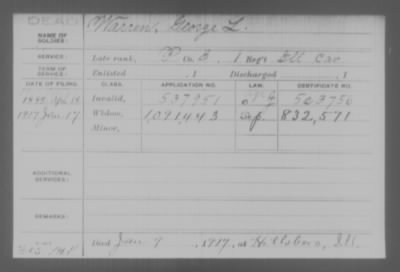 DEAD
NAME OF SOLDIER: Warren, George L.
SERVICE: Late rank, P Co. B, 1 Reg't Ill Cav
TERM OF SERVICE: Enlisted , 1 Discharged , 1
DATE OF FILING. CLASS. APPLICATION NO. LAW. CERTIFICATE NO.
1885 Invalid, 537951
1917 Jan. 17 Widow, 1,091,443 832,571
Minor,
ADDITIONAL SERVICES:
REMARKS:
Died Jan 7, 1917, at Hillsboro, Ill.